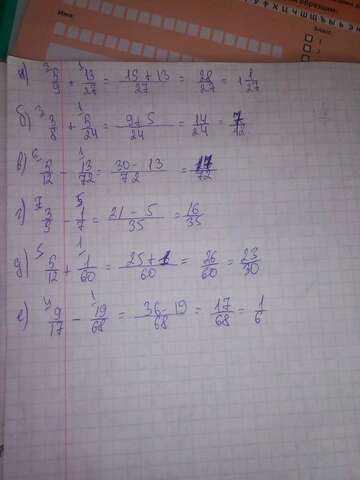 образцам:
Класс:
Имя:
а) ³5/9 + ¹13/27 = 15+13/27 = 28/27 = 1 1/27
б) ³3/8 + ¹5/24 = 9+5/24 = 14/24 = 7/12
в) ⁶5/12 - ¹13/72 = 30-13/72 = 17/72
г) ⁷3/5 - ⁵1/7 = 21-5/35 = 16/35
д) ⁵5/12 + ¹1/60 = 25+1/60 = 26/60 = 23/30
е) ⁴9/17 - ¹19/68 = 36-19/68 = 17/68 = 1/6